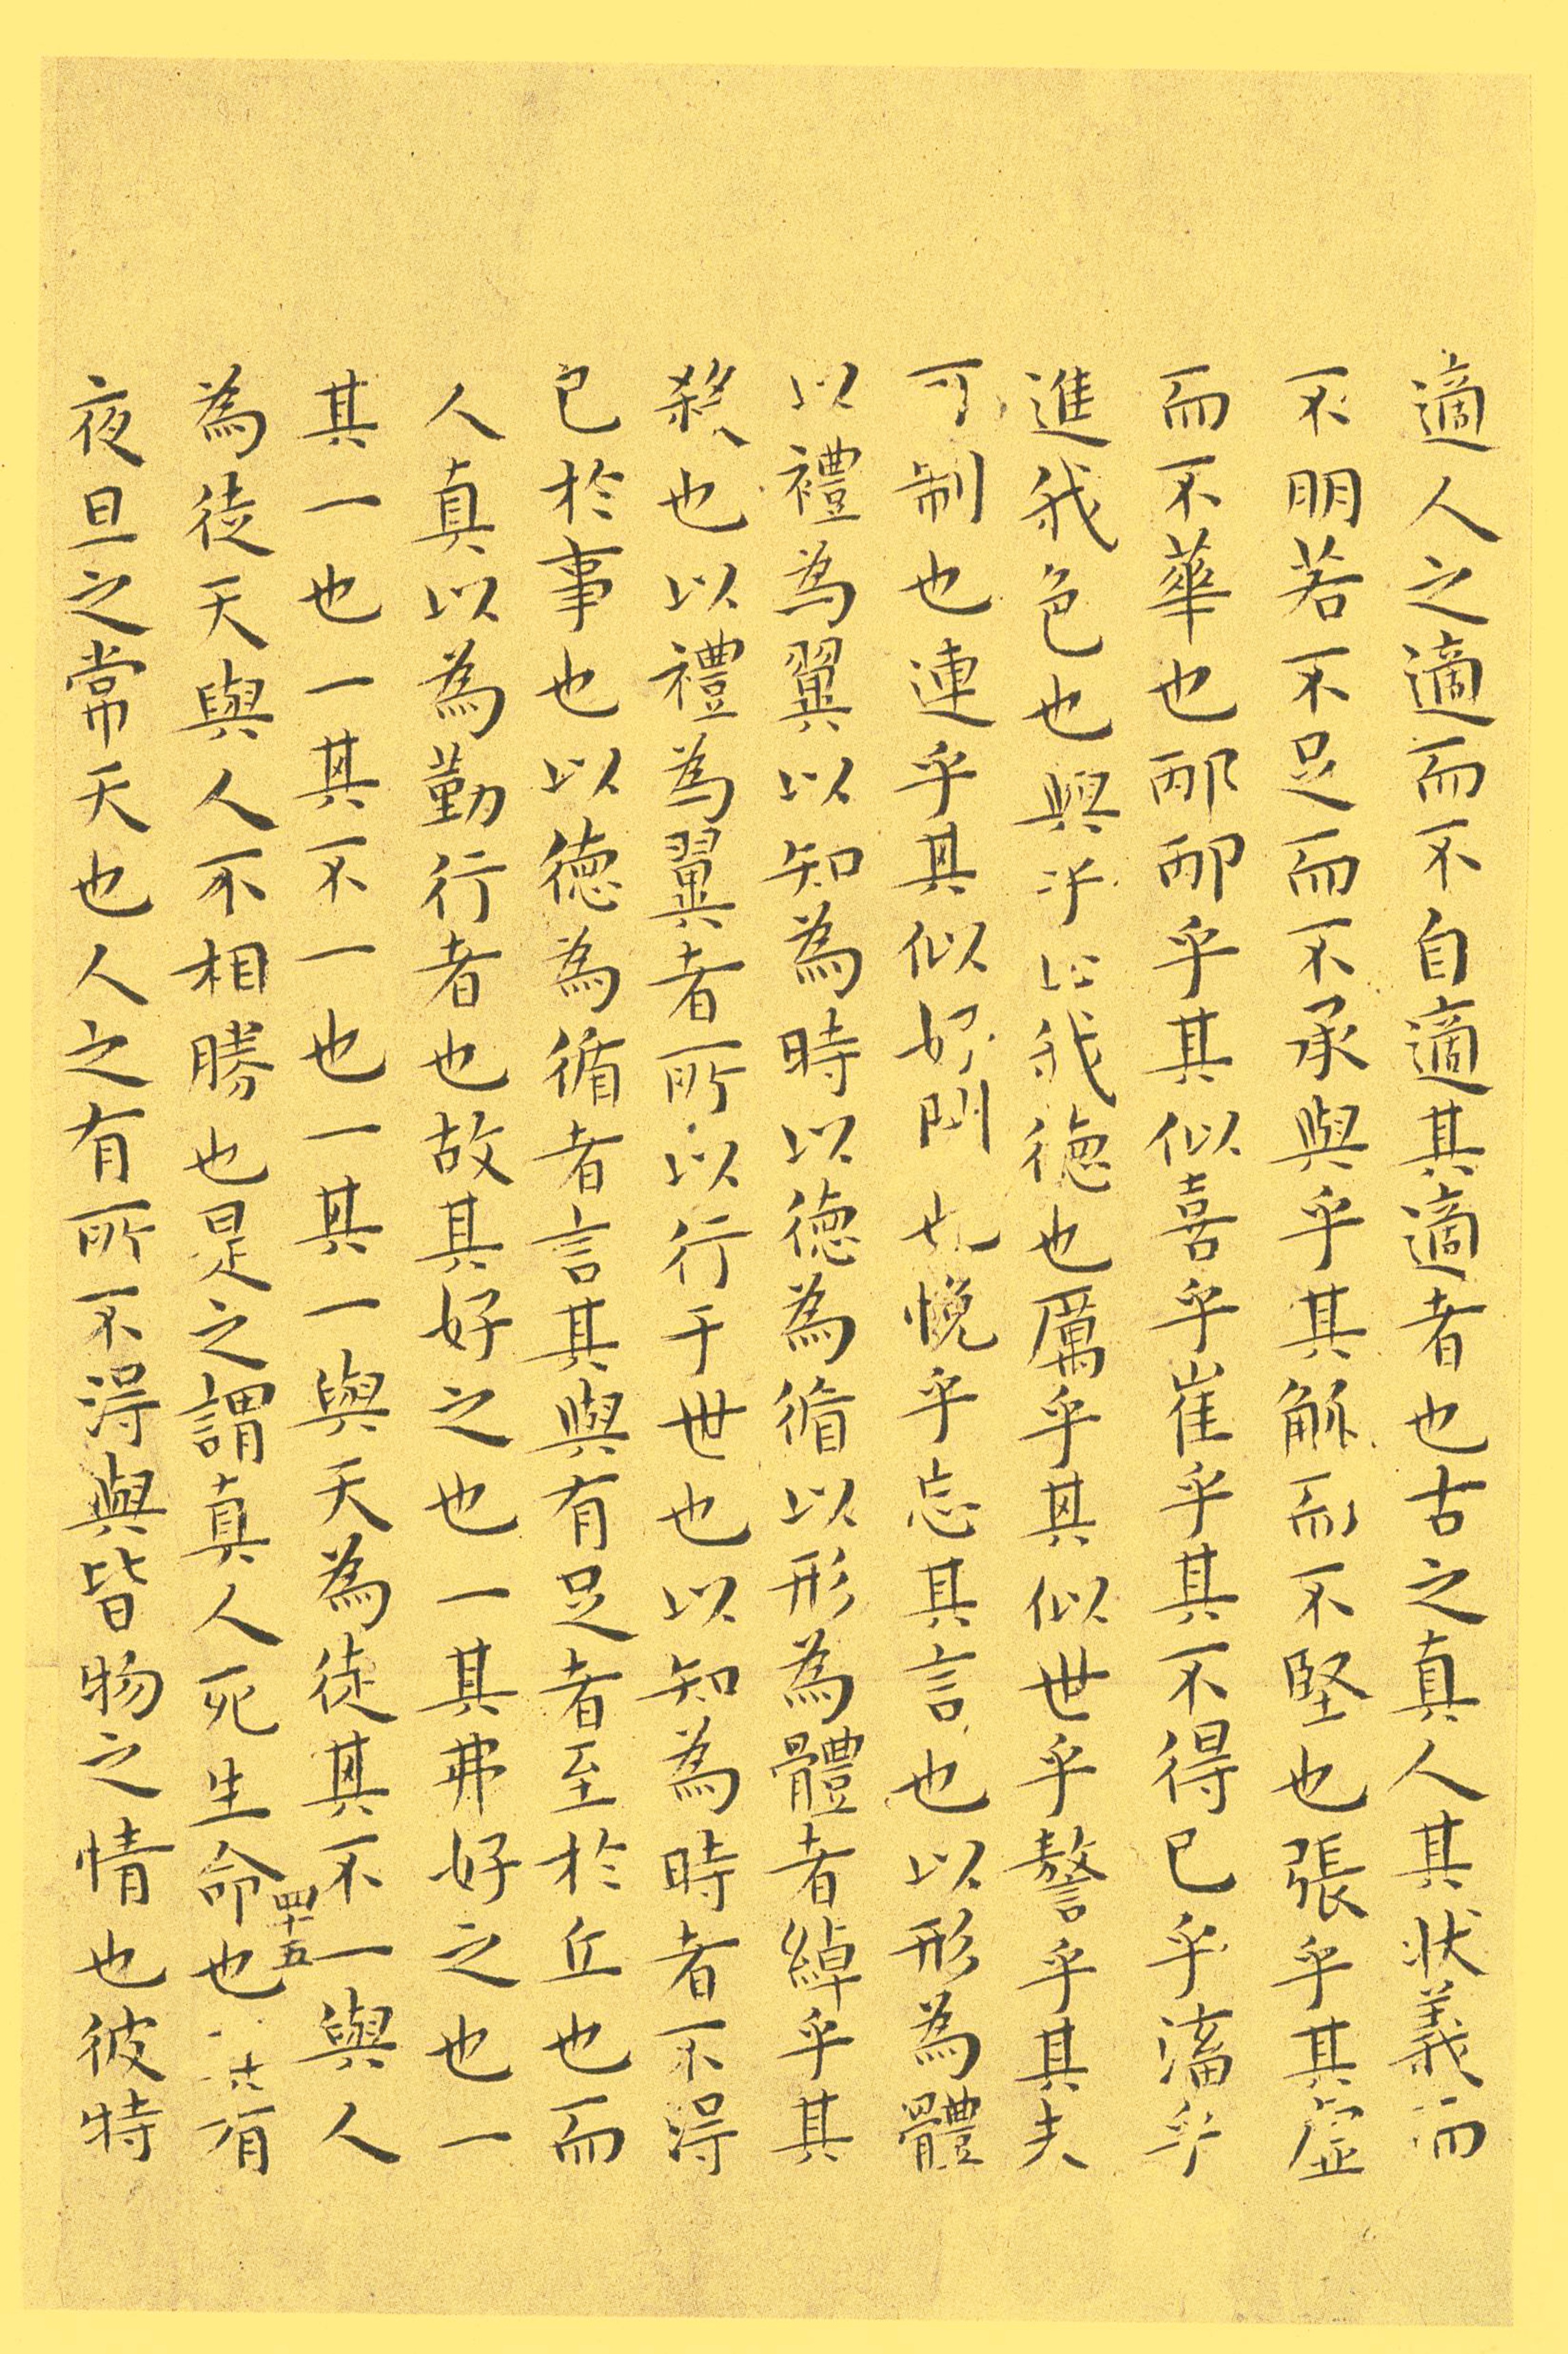 適人之適而不自適其適者也古之真人其狀義而
不明若不足而不承與乎其觚而不堅也張乎其虛
而不華也邴邴乎其似喜乎崔乎其不得已乎滀乎
進我色也與乎止我德也厲乎其似世乎謷乎其夫
可制也連乎其似好閉也悗乎忘其言也以形為體
以禮為翼以知為時以德為循以形為體者綽乎其
殺也以禮為翼者所以行于世也以知為時者不淂
已於事也以德為循者言其與有足者至於丘也而
人真以為勤行者也故其好之也一其弗好之也一
其一也一其不一也一其一與天為徒其不一與人
為徒天與人不相勝也是之謂真人死生命也其有
四十五
夜旦之常天也人之有所不淂與皆物之情也彼特